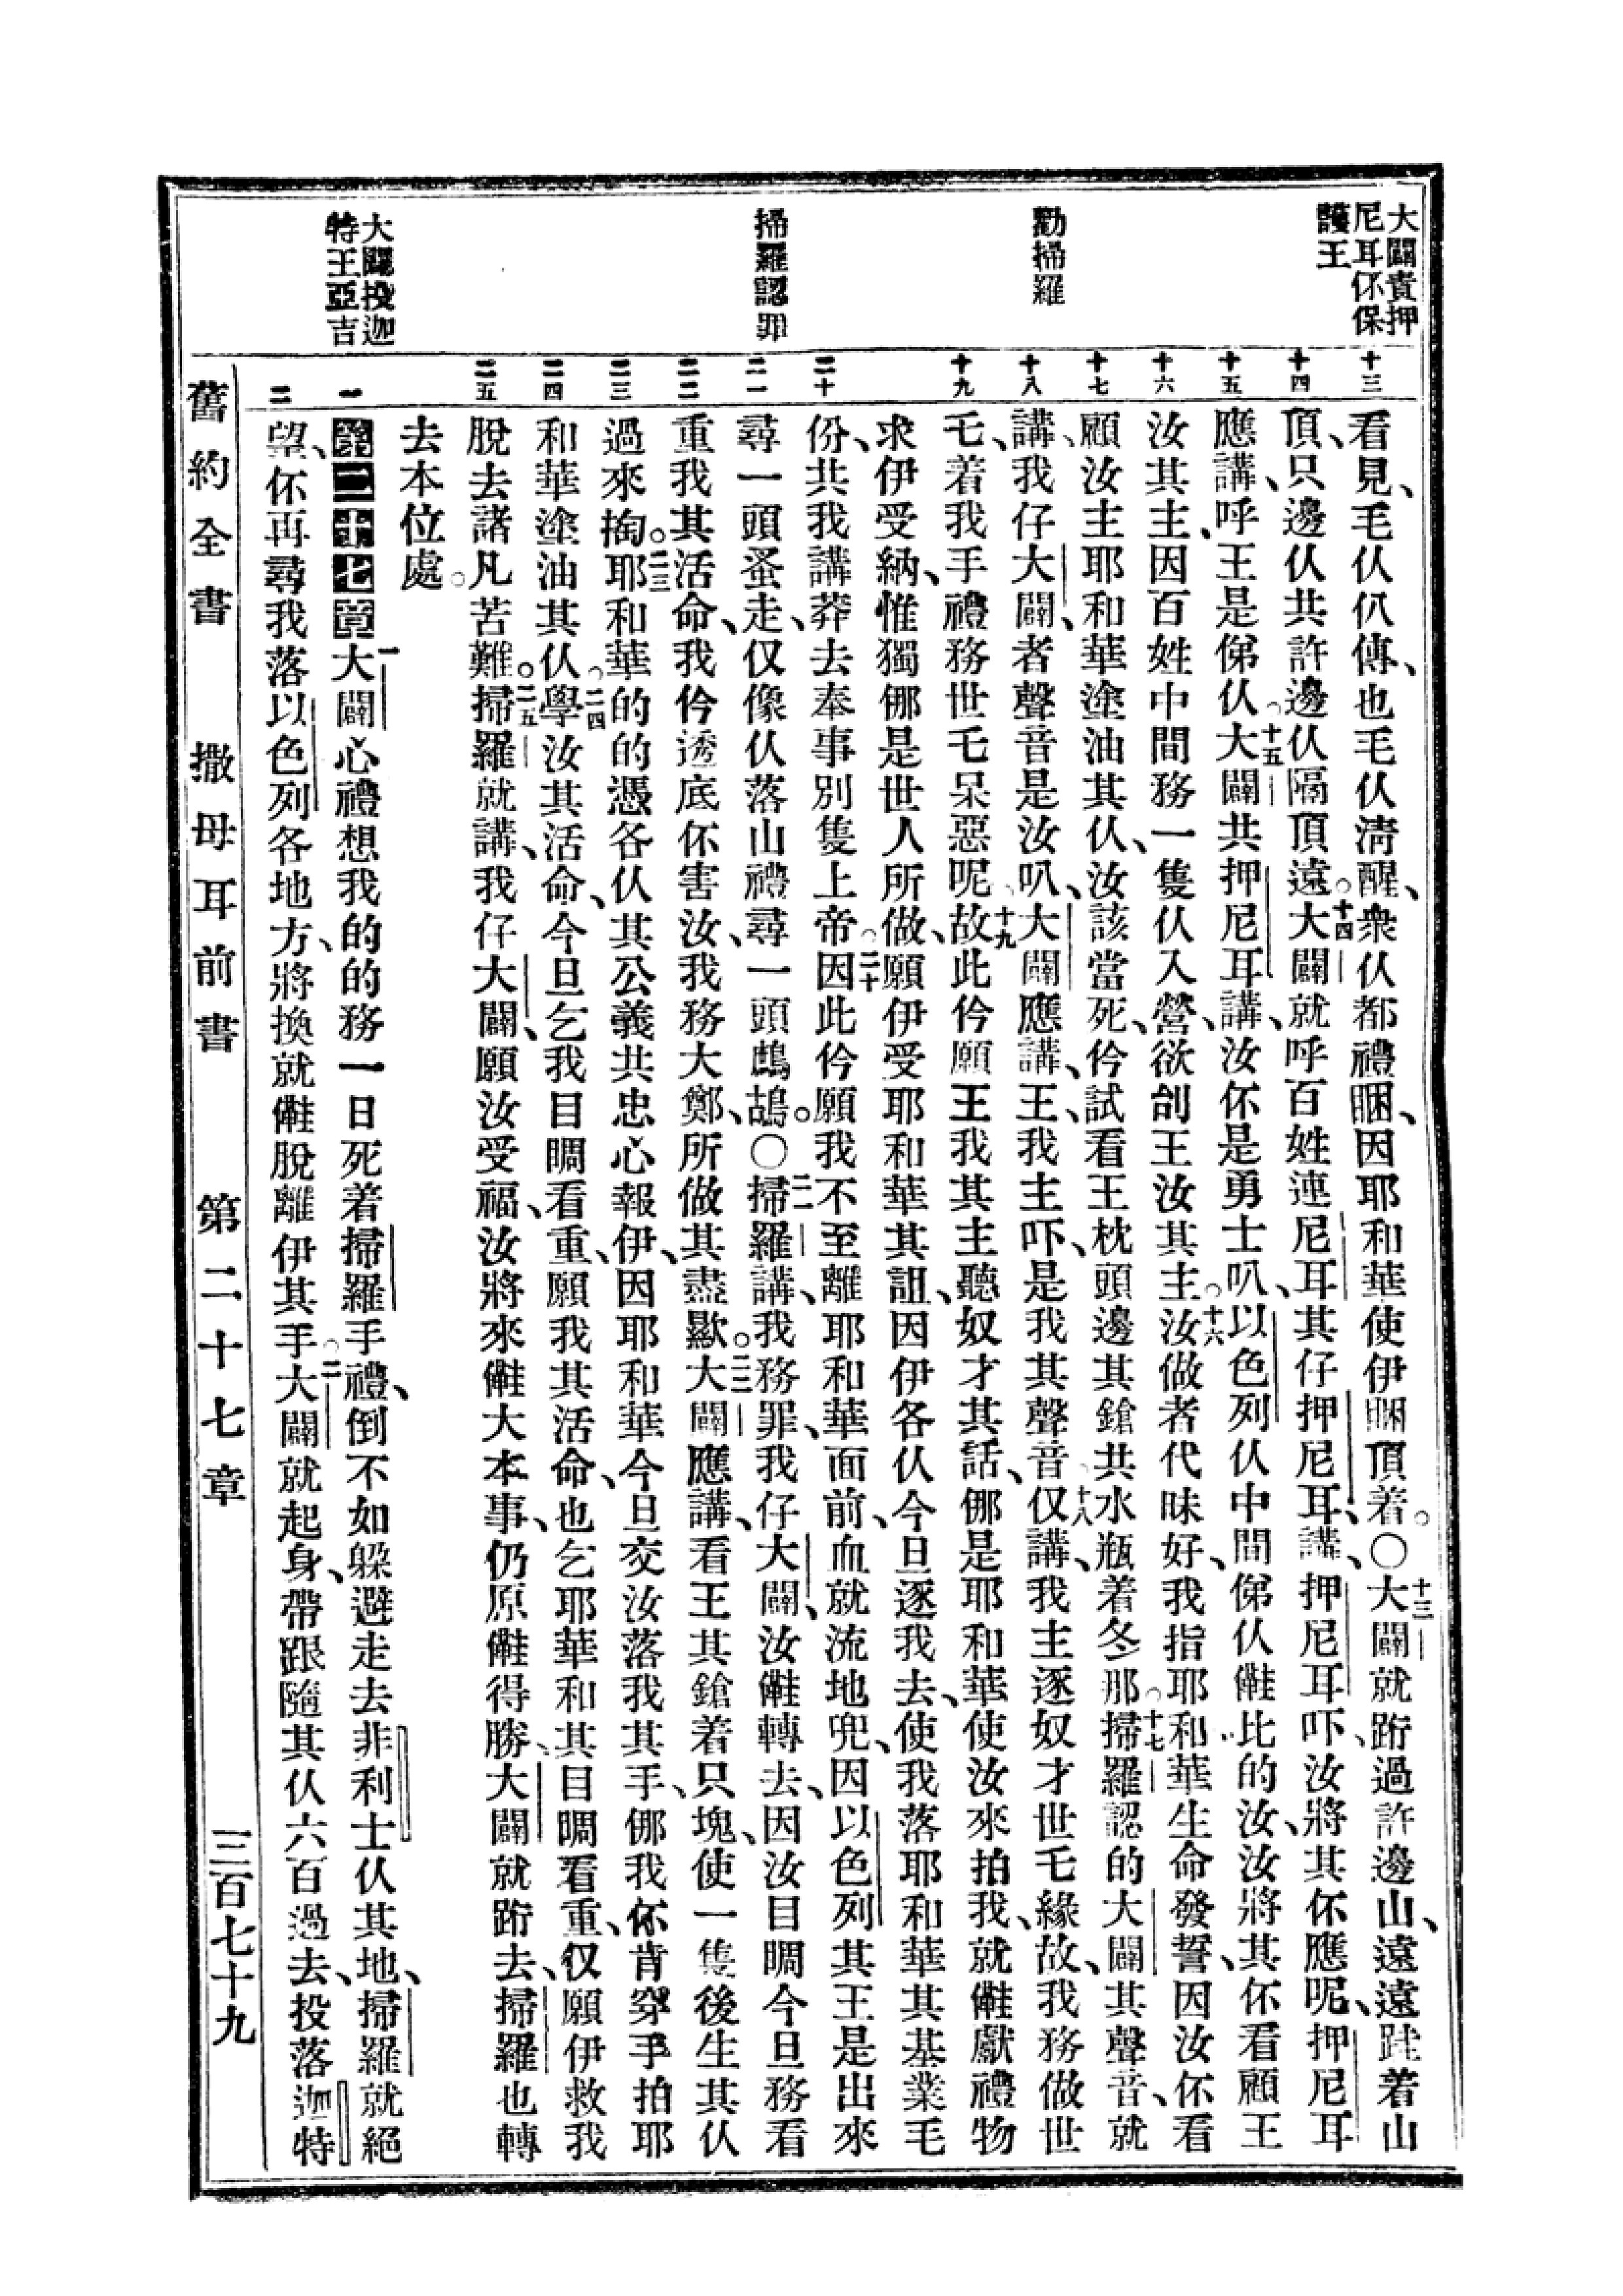 大闢責押
尼耳伓保
護王
勸掃羅
掃羅認罪
大闢投迦
特王亞吉
十三
十四
十五
十六
十七
十八
十九
二十
二一
二二
二三
二四
二五
一
二
看見、毛仈仈傳、也毛仈淸醒、衆仈都禮睏、因耶和華使伊睏頂着。〇十三大闢就跨過許邊山、遠遠跬着山
頂、只邊仈共許邊仈隔頂遠。十四大闢就呼百姓連尼耳其仔押尼耳、講、押尼耳吓、汝將其伓應呢、押尼耳
應講、呼王是俤仈。十五大闢共押尼耳講、汝伓是勇士叭、以色列仈中間俤仈㒕比的汝、汝將其伓看顧王
汝其主、因百姓中間務一隻仈入營、欲刣王汝其主。十六汝做者代昧好、我指耶和華生命發誓、因汝伓看
顧汝主耶和華塗油其仈、汝該當死、仱試看王枕頭邊其鎗共水瓶着冬那。十七掃羅認的大闢其聲音、就
講、我仔大闢、者聲音是汝叭、大闢應講、王、我主吓、是我其聲音。十八仅講、我主逐奴才世乇緣故、我務做世
乇、着我手禮務世乇呆惡呢。十九故此仱願王我其主聽奴才其話、倻是耶和華使汝來拍我、就㒕獻禮物
求伊受納、惟獨倻是世人所做、願伊受耶和華其詛、因伊各仈今旦逐我去、使我落耶和華其基業毛
份、共我講莽去奉事別隻上帝。二十因此仱願我不至離耶和華面前、血就流地兜、因以色列其王是出來
尋一頭蚤走、仅像仈落山禮尋一頭鷓鴣。〇二一掃羅講、我務罪、我仔大闢、汝㒕轉去、因汝目睭今旦務看
重我其活命、我仱透底伓害汝、我務大鄭、所做其盡歞。二二大闢應講、看王其鎗着只塊、使一隻後生其仈
過來掏。二三耶和華的的憑各仈其公義共忠心報伊、因耶和華今旦交汝落我其手、倻我伓肯穿手拍耶
和華塗油其仈。二四學汝其活命、今旦乞我目睭看重、願我其活命、也乞耶華和其目睭看重、仅願伊救我
脫去諸凡苦難。二五掃羅就講、我仔大闢、願汝受福、汝將來㒕大本事、仍原㒕得勝、大闢就跨去、掃羅也轉
去本位處。
第二十七章一大闢心禮想我的的務一日死着掃羅手禮、倒不如躱避走去非利士仈其地、掃羅就絕
望、伓再尋我落以色列各地方、將換就㒕脫離伊其手。二大闢就起身、帶跟隨其仈六百過去、投落迦特
舊約全書　撒母耳前書　第二十七章　三百七十九